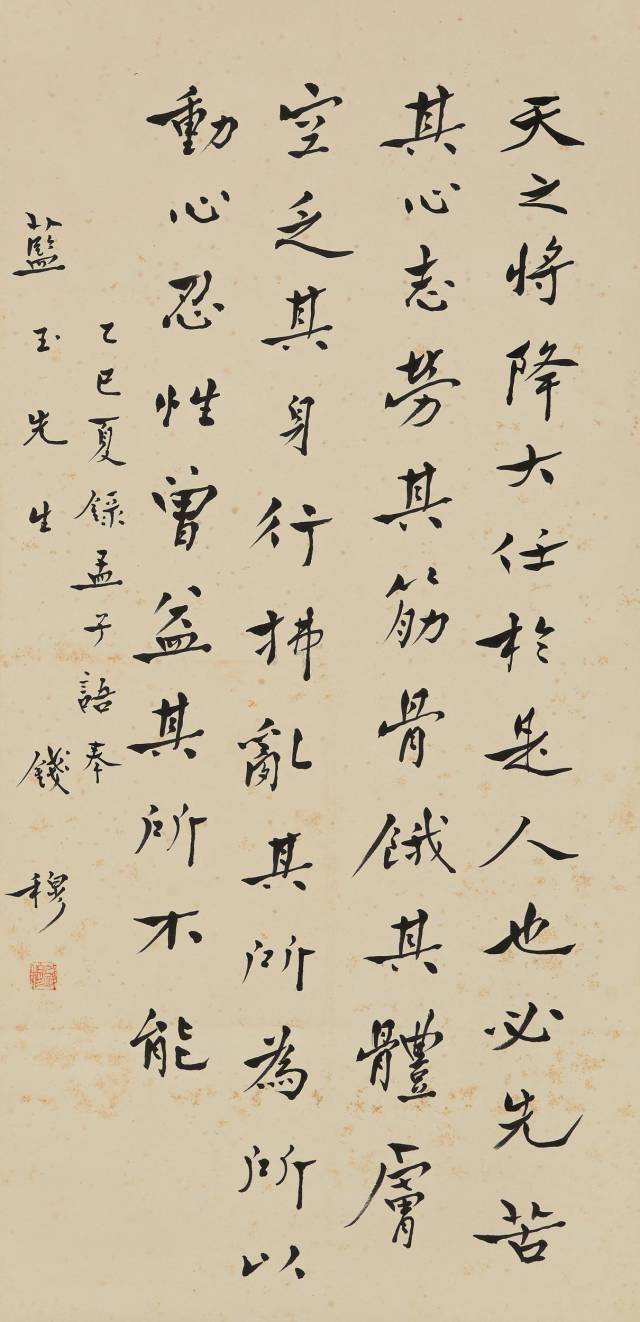 天之將降大任於是人也必先苦
其心志勞其筋骨餓其體膚
空乏其身行拂亂其所為所以
動心忍性曾益其所不能
乙巳夏錄孟子語奉
藍玉先生 錢穆